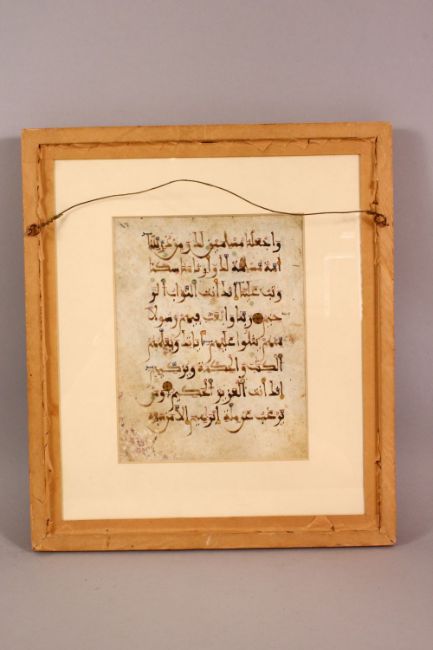 واجعلنا مسلمين لك ومن ذريتنا
امة مسلمة لك وارنا منسكنا
وتب علينا إنك أنت التواب الر
حيم ربنا وابعث فيهم رسولا
منهم يتلوا عليهم آيتك ويعلمهم
الكتب والحكمة ويزكيهم
إنك أنت العزيز الحكيم ومن
يرغب عن ملة إبرهيم إلا من سفه